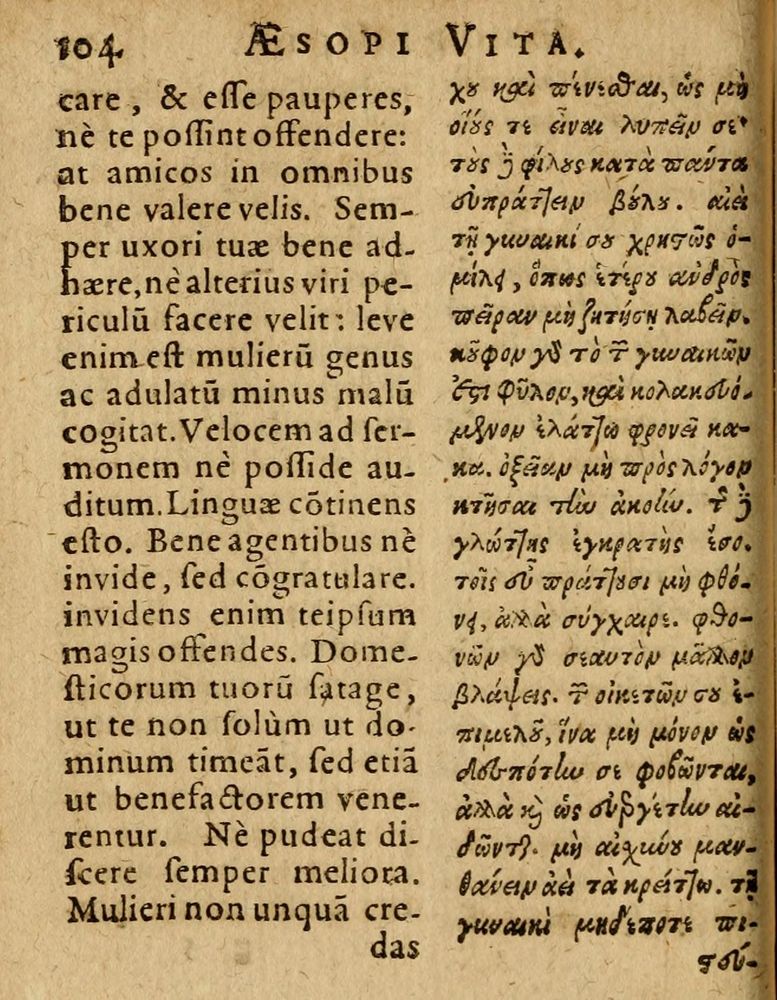 104 ÆSOPI VITA.
care, & eſſe pauperes,
nè te poſſint offendere:
at amicos in omnibus
bene valere velis. Sem-
per uxori tuæ bene ad-
hære, nè alterius viri pe-
riculũ facere velit: leve
enim eſt mulierũ genus
ac adulatũ minus malũ
cogitat. Velocem ad ſer-
monem nè poſſide au-
ditum. Linguæ cõtinens
eſto. Bene agentibus nè
invide, ſed cõgratulare.
invidens enim teipſum
magis offendes. Dome-
ſticorum tuorũ ſatage,
ut te non ſolùm ut do-
minum timeãt, ſed etiã
ut benefactorem vene-
rentur. Nè pudeat di-
ſcere ſemper meliora.
Mulieri non unquã cre-
das
χου καὶ πένεσθαι, ὡς μὴ
οἵους τε εἶναι λυπεῖν σε·
τοὺς δὲ φίλους κατὰ πάντα
εὐπράττειν βούλου. ἀεὶ
τῇ γυναικί σου χρηστῶς ὁ-
μίλει, ὅπως ἑτέρου ἀνδρὸς
πεῖραν μὴ ζητήσῃ λαβεῖν.
κοῦφον γὰρ τὸ τῶν γυναικῶν
ἐστι φῦλον, καὶ κολακευό-
μενον ἐλάττω φρονεῖ κα-
κα. ὀξεῖαν μὴ πρὸς λόγον
κτῆσαι τὴν ἀκοήν. τῆς δὲ
γλώττης ἐγκρατὴς ἔσο.
τοῖς εὖ πράττουσι μὴ φθό-
νει, ἀλλὰ σύγχαιρε. φθο-
νῶν γὰρ σεαυτὸν μᾶλλον
βλάψεις. τῶν οἰκετῶν σου ἐ-
πιμελοῦ, ἵνα μὴ μόνον ὡς
δεσπότην σε φοβῶνται,
ἀλλὰ καὶ ὡς εὐεργέτην αἰ-
δῶνται. μὴ αἰχύνου μαν-
θάνειν ἀεὶ τὰ κρείττω. τῇ
γυναικὶ μηδέποτε πι-
στεύ-